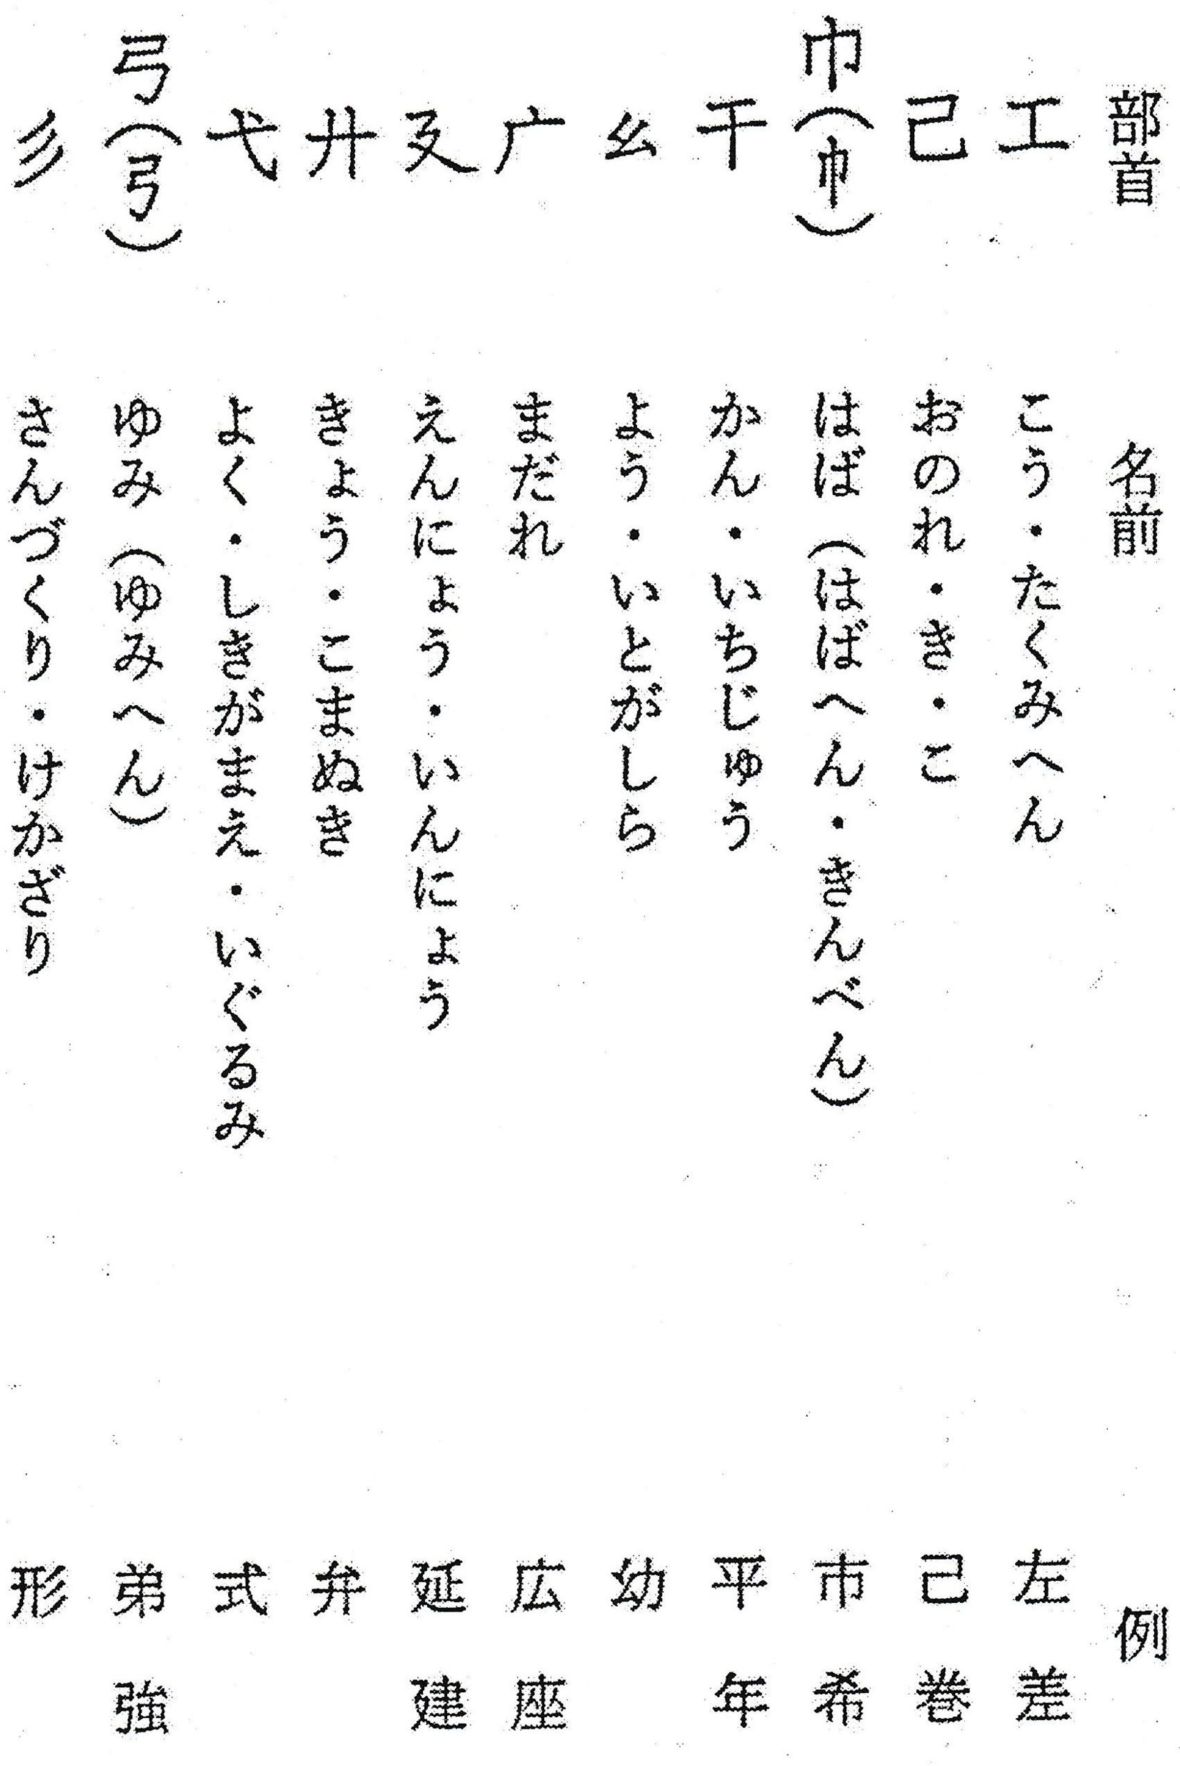 部首 名前 例
工 こう・たくみへん 左 差
己 おのれ・き・こ 己 巻
巾(巾) はば(はばへん・きんべん) 市 希
干 かん・いちじゅう 平 年
幺 よう・いとがしら 幼
广 まだれ 広 座
廴 えんにょう・いんにょう 延 建
廾 きょう・こまぬき 弁
弋 よく・しきがまえ・いぐるみ 式
弓(弓) ゆみ(ゆみへん) 弟 強
彡 さんづくり・けかざり 形